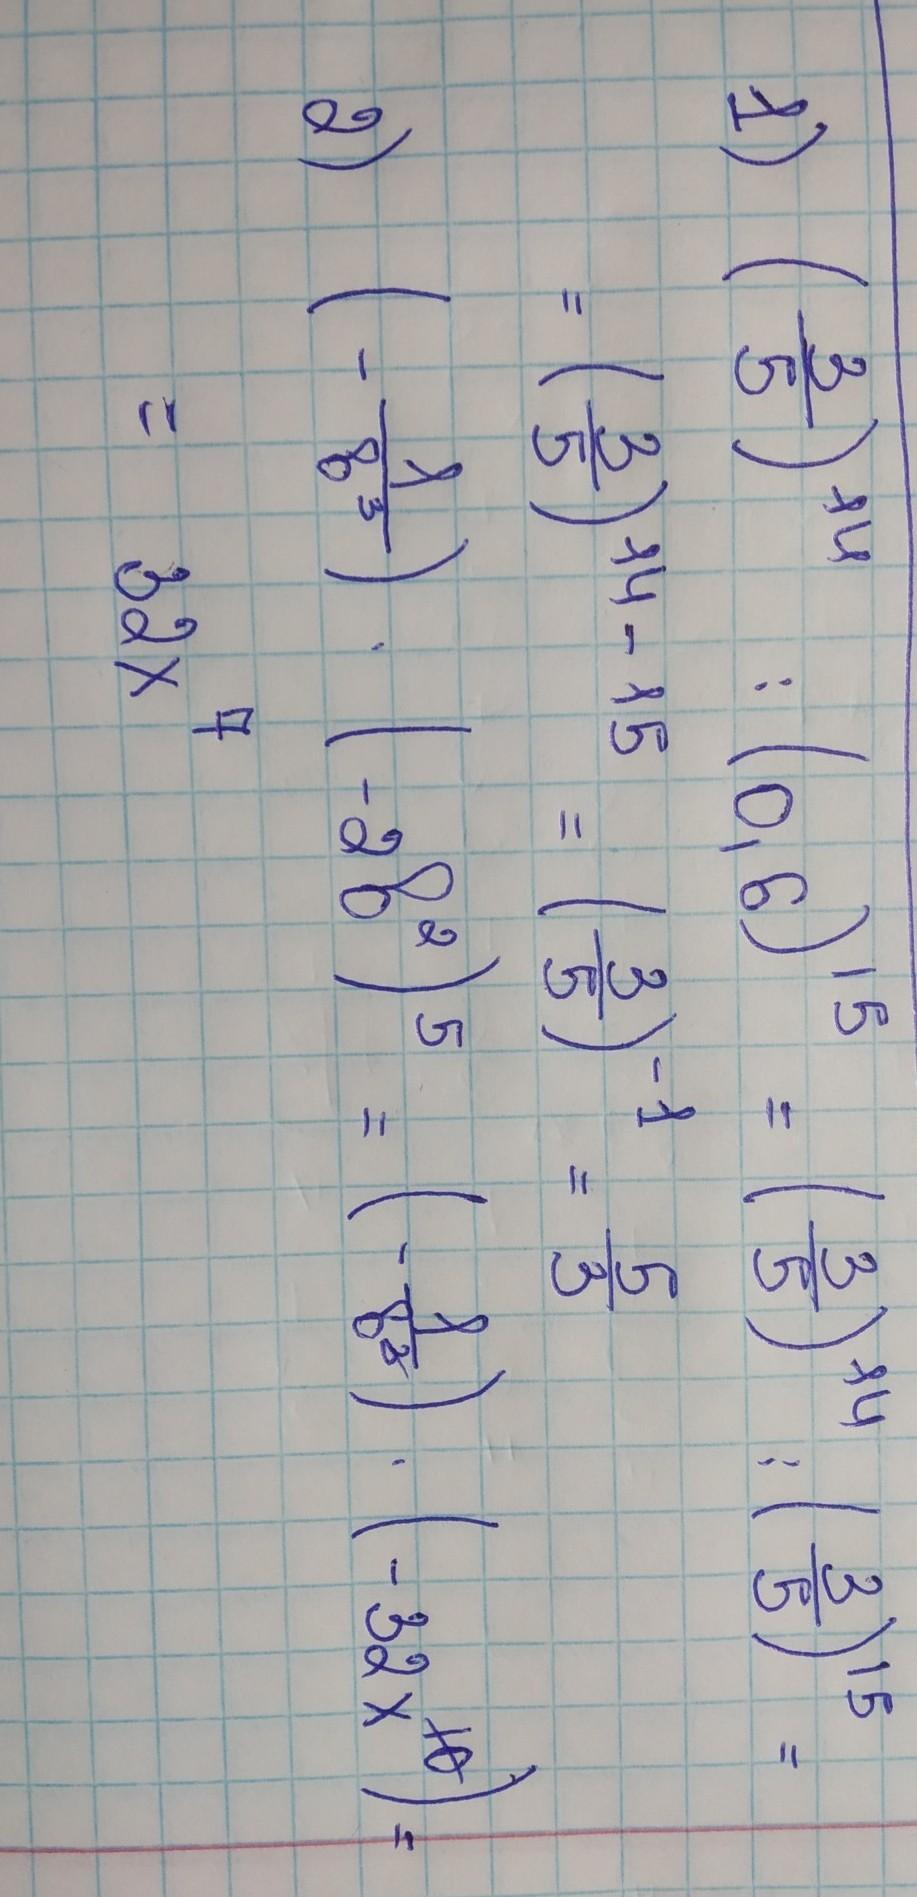 1) (3/5)^14 : (0,6)^15 = (3/5)^14 : (3/5)^15 =
= (3/5)^14-15 = (3/5)^-1 = 5/3
2) (-1/8^3) · (-28^2)^5 = (-1/8^2) · (-32x^10) =
= 32x^7